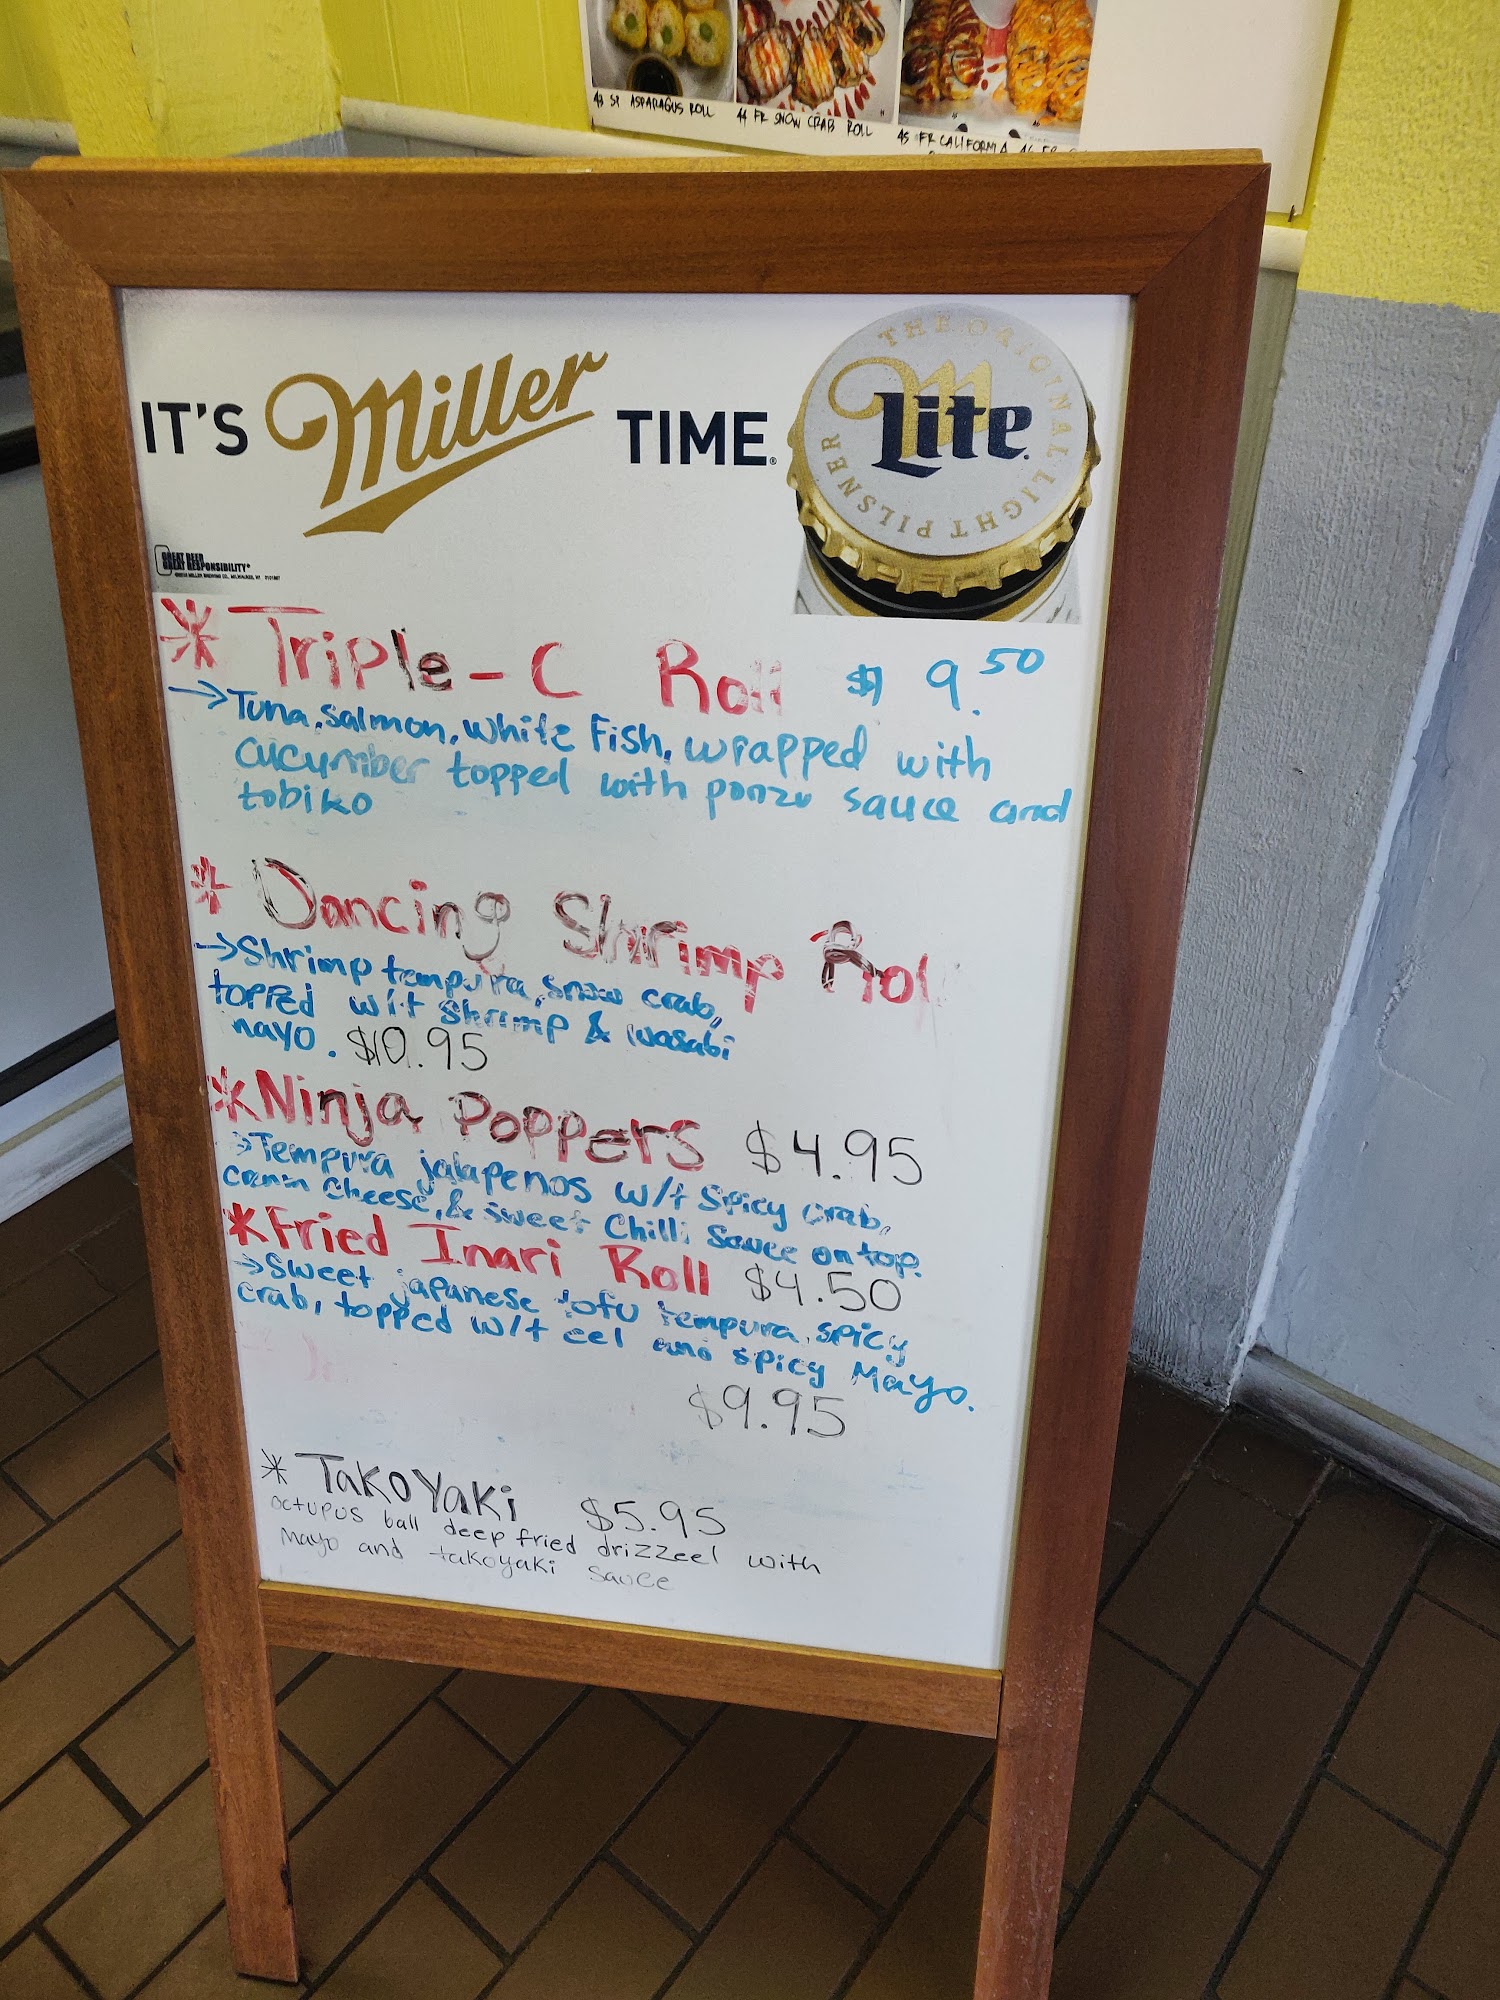 43 SP ASPARAGUS ROLL
44 FR SNOW CRAB ROLL
45 FR CALIFORNIA 46 FR
IT'S Miller TIME.
THE ORIGINAL LIGHT PILSNER
Lite
GREAT BEER
GREAT RESPONSIBILITY®
* Triple-C Roll $9.50
→ Tuna, salmon, white Fish, wrapped with
cucumber topped with ponzu sauce and
tobiko
* Dancing Shrimp Roll
→ Shrimp tempura, snow crab,
topped w/t shrimp & wasabi
mayo. $10.95
* Ninja Poppers $4.95
→ Tempura jalapenos w/t spicy crab,
cream cheese, & sweet Chilli Sauce on top.
* Fried Inari Roll $4.50
→ Sweet japanese tofu tempura, spicy
crab, topped w/t eel and spicy Mayo.
$9.95
* TAKOYAKi $5.95
octupus ball deep fried drizzeel with
mayo and takoyaki sauce